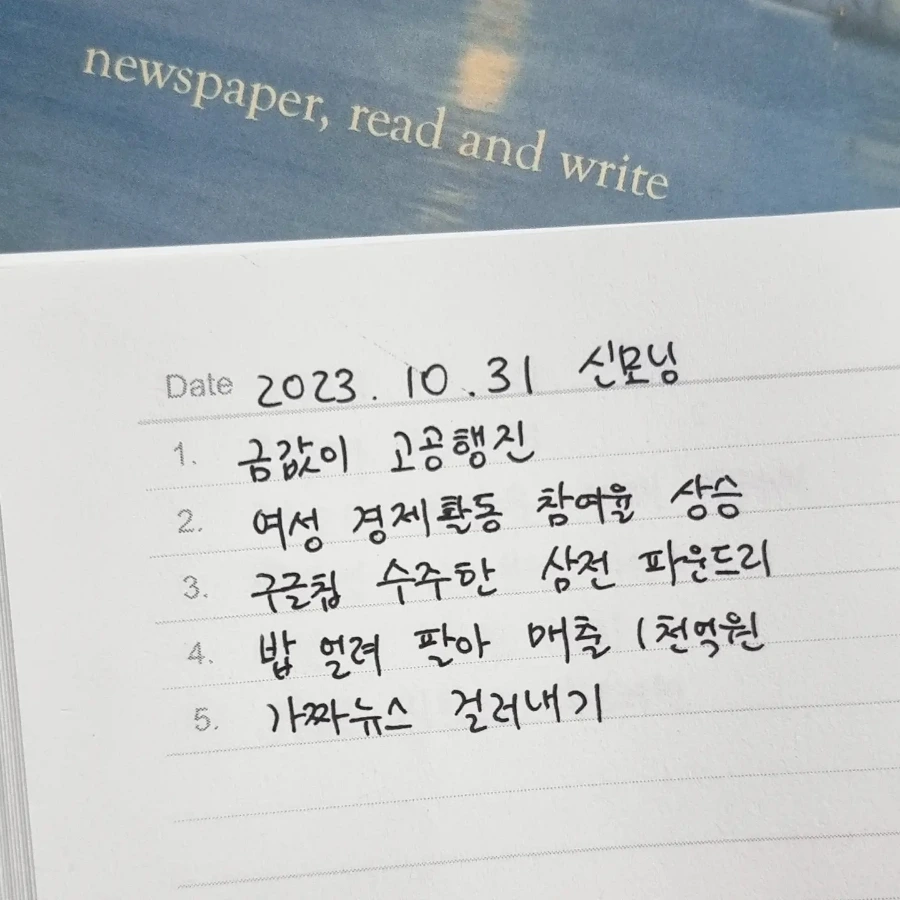 newspaper, read and write
Date 2023. 10. 31 신모닝
1. 금값이 고공행진
2. 여성 경제활동 참여율 상승
3. 구글칩 수주한 삼전 파운드리
4. 밥 얼려 팔아 매출 1천억원
5. 가짜뉴스 걸러내기